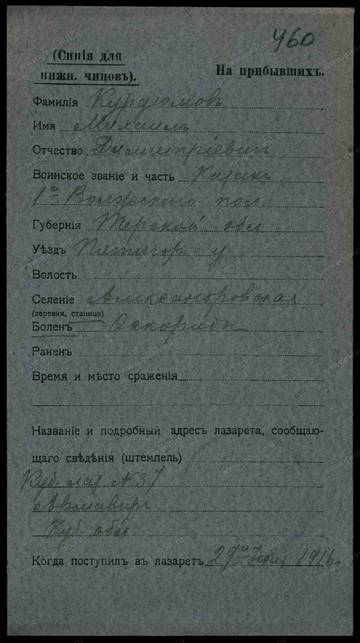 460
(Синія для
нижн. чиновъ).
На прибывшихъ.
Фамилія Курдюмовъ
Имя Михаилъ
Отчество Димитріевичъ
Воинское званіе и часть Казакъ
1го Волжскаго пол.
Губернія Терской обл
Уѣздъ Пятигор у.
Волость
Селеніе Александровская
(деревня, станица)
Боленъ
Раненъ
Время и мѣсто сраженія
Названіе и подробный адресъ лазарета, сообщаю-
щаго свѣдѣнія (штемпель)
Куб. лаз. N 37
Армавиръ
Куб. обл
Когда поступилъ въ лазаретъ 29го 1916